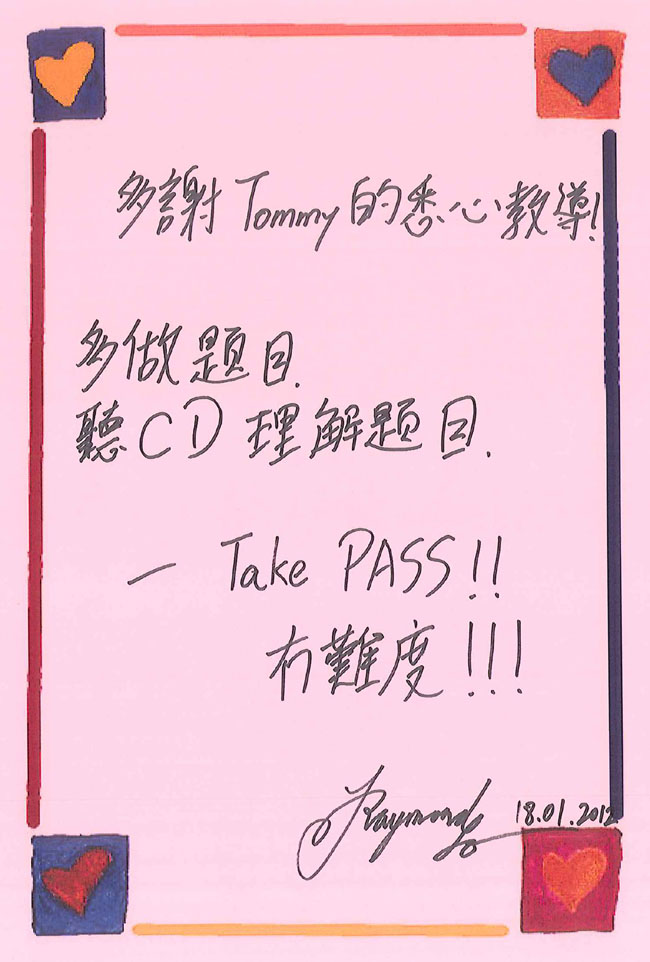 多謝 Tommy 的悉心教導!
多做題目.
聽CD 理解題目.
一 Take PASS!!
冇難度!!!
Raymond 18.01.2012